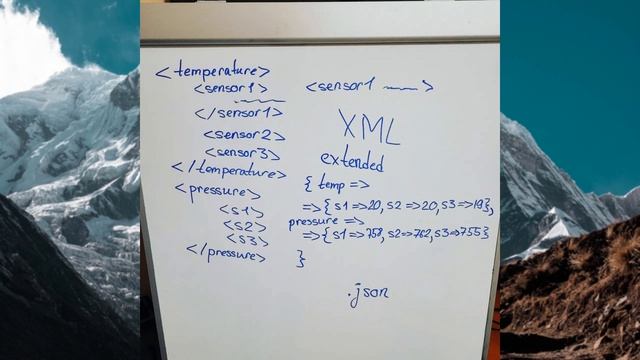 <temperature>
<sensor1>
</sensor1>
<sensor2>
<sensor3>
</temperature>
<pressure>
<s1>
<s2>
<s3>
</pressure>
<sensor1 >
XML
extended
{ temp =>
=>{s1=>20, s2=>20, s3=>19},
pressure =>
=>{s1=>758, s2=>762, s3=>755}
}
.json